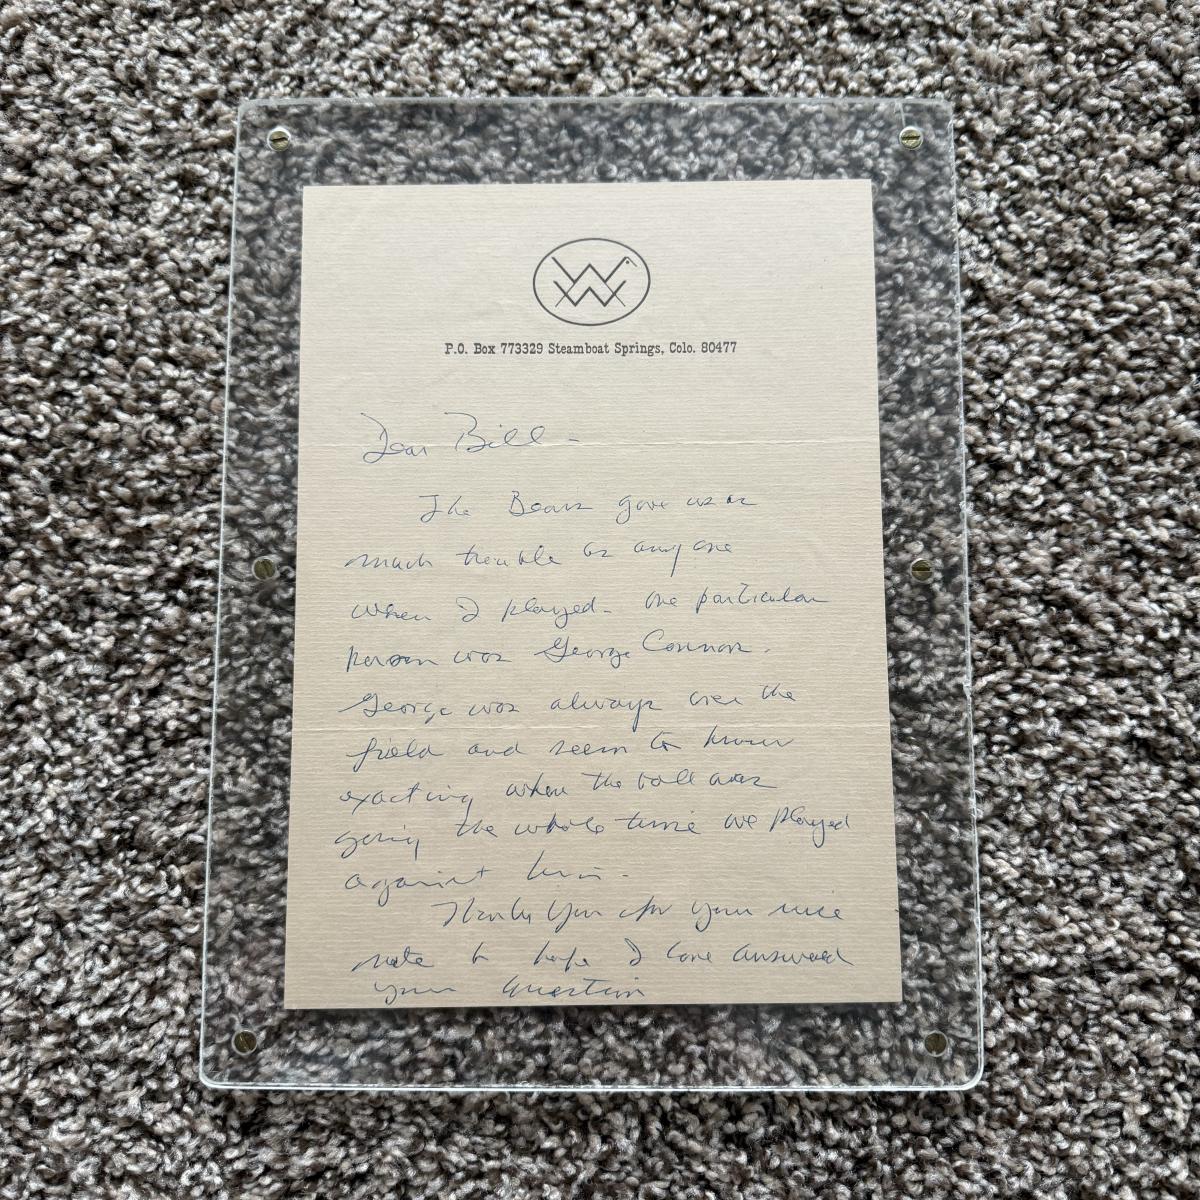 P.O. Box 773329 Steamboat Springs, Colo. 80477
Dear Bill -
The Bears gave us as
much trouble as any one
when I played - One particular
person was George Connor.
George was always over the
field and seem to know
exacting where the ball was
going the whole time we played
against him.
Thank you for your nice
note & hope I have answered
your question